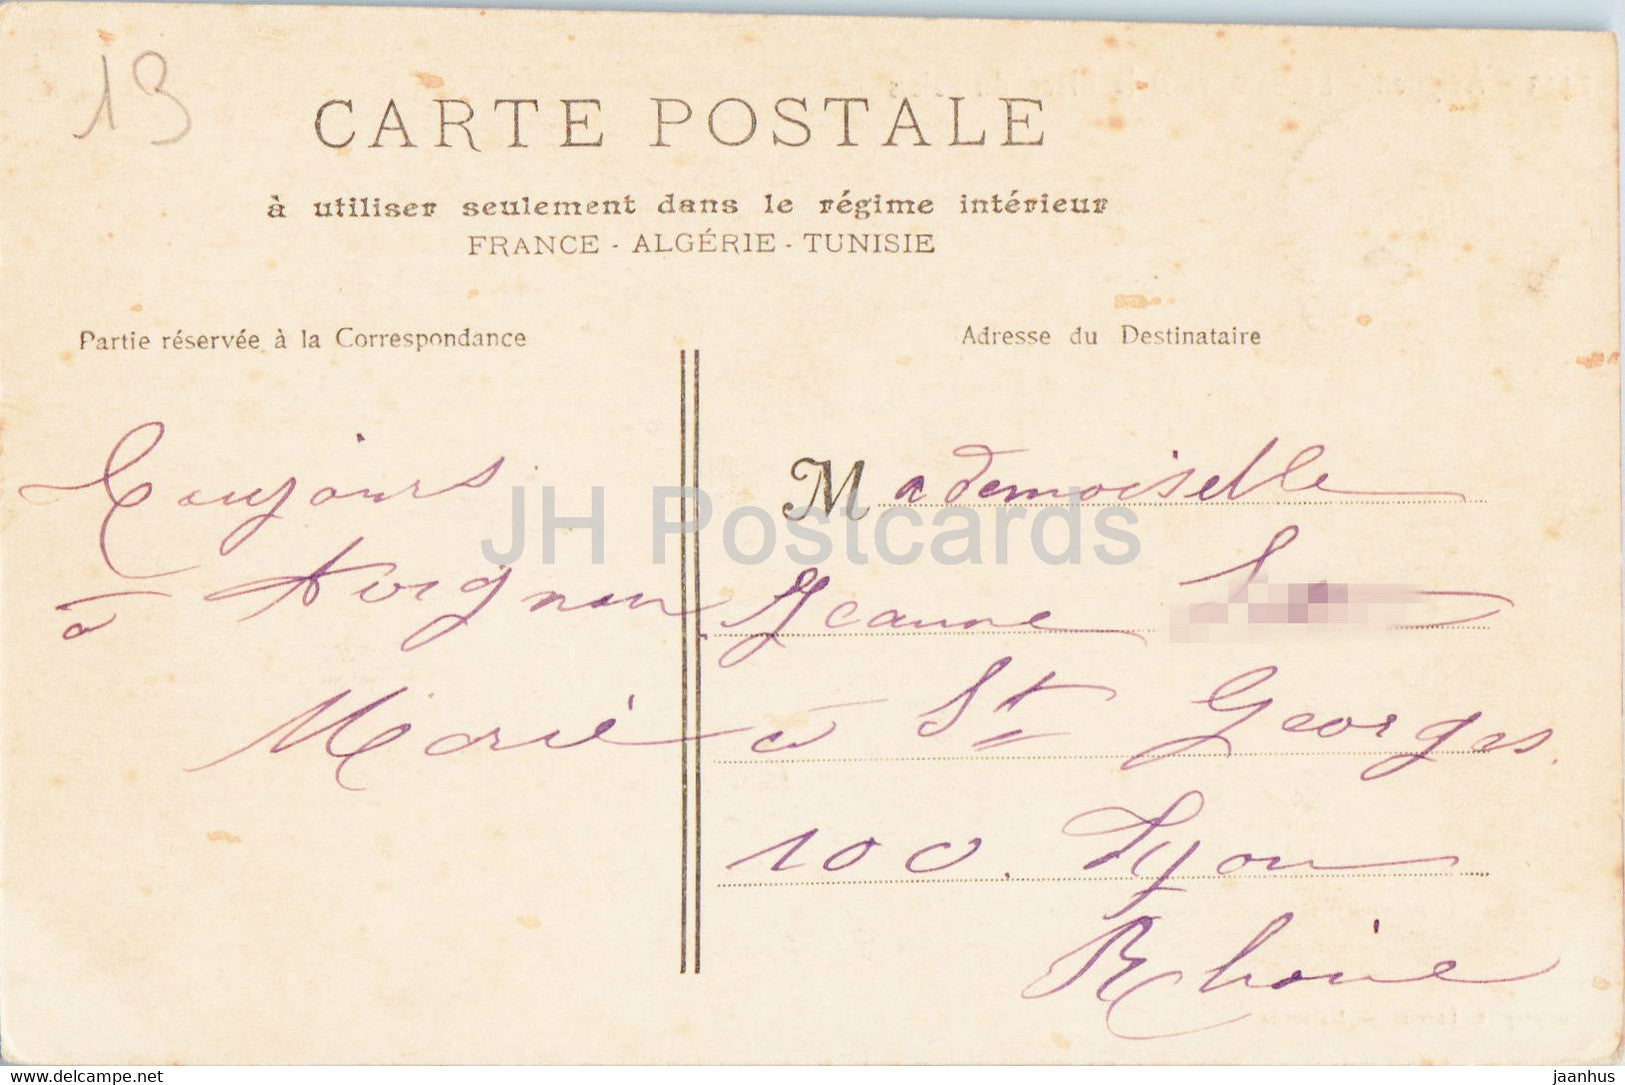 13
CARTE POSTALE
à utiliser seulement dans le régime intérieur
FRANCE - ALGÉRIE - TUNISIE
Partie réservée à la Correspondance
Adresse du Destinataire
Toujours
à Avignon
Marie
Mademoiselle
Jeanne
à St Georges
100. Lyon
Rhône
JH Postcards
www.delcampe.net
jaanhus